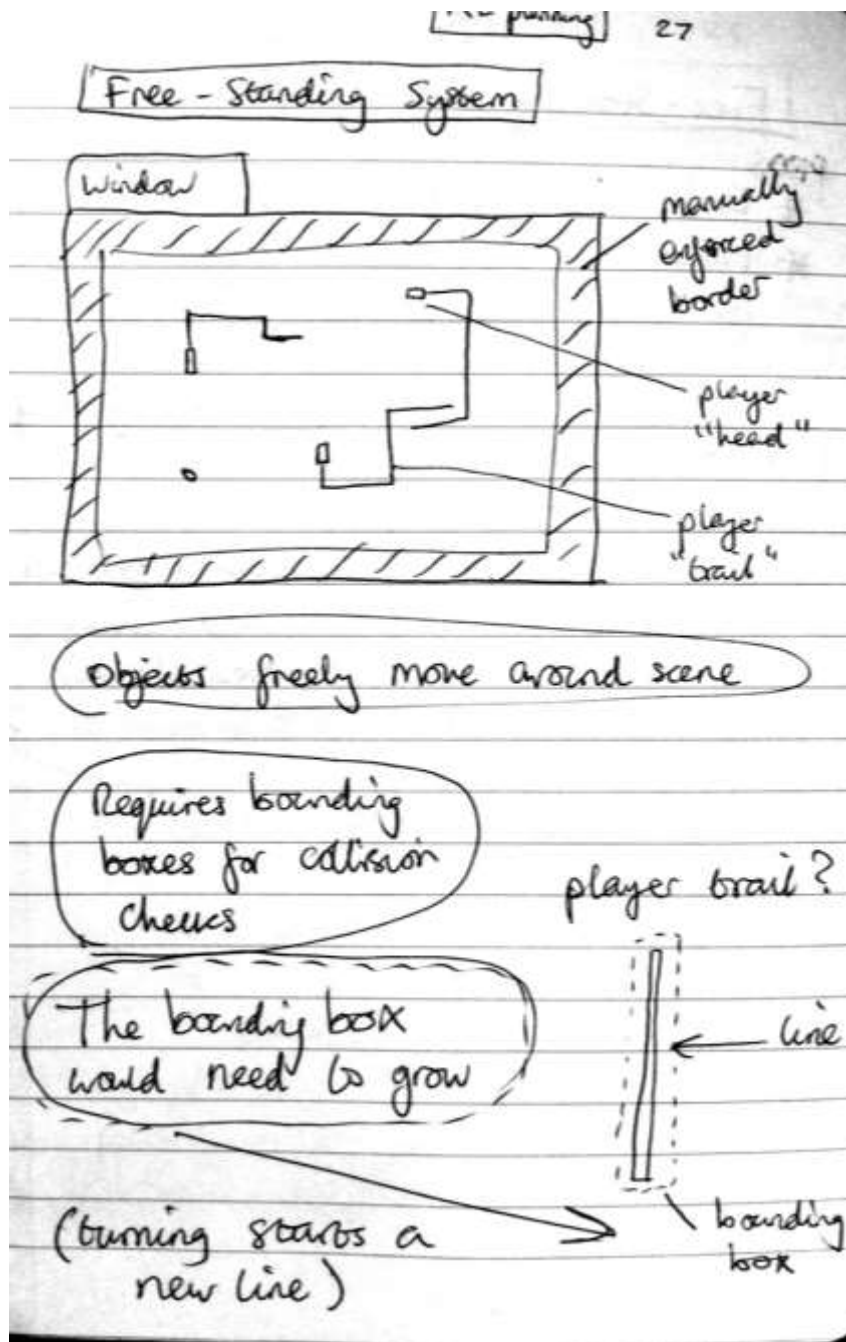 planning 27
Free-Standing System
Window
manually
enforced
border
player
"head"
player
"trail"
Objects freely move around scene
Requires bounding
boxes for collision
checks
player trail?
The bounding box
would need to grow
line
bounding
box
(turning starts a
new line)